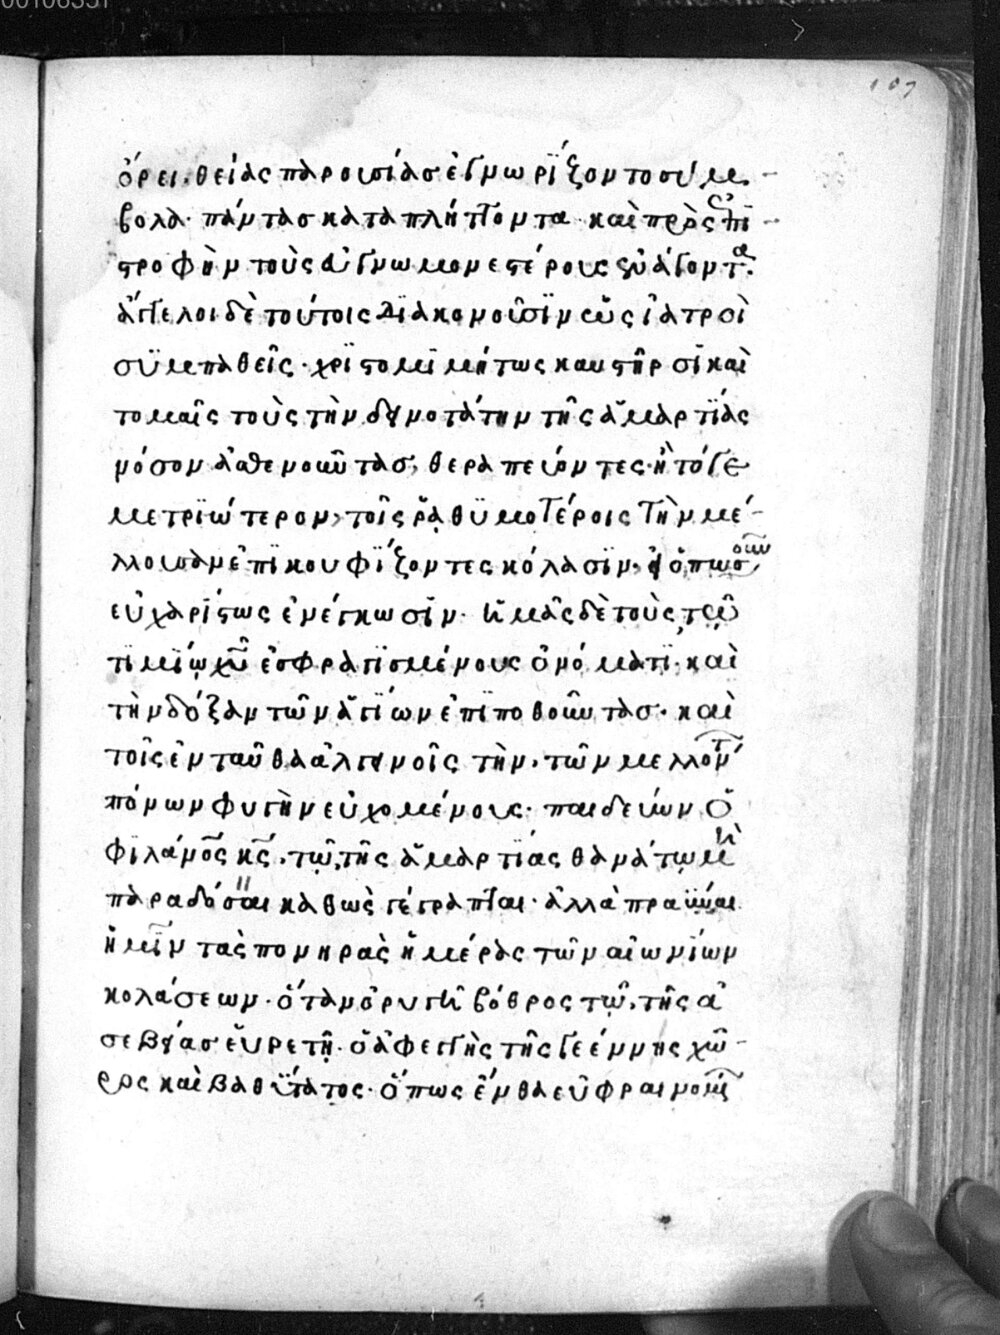 107
ὄρει. θείας παρουσίασ ἐγνωρΐζοντο σύμ-
βολα· πάντασ καταπλήττοντα· καὶ πρὸς ἐπι-
στροφὴν τοὺς ἀγνωμονεστέρους ἐνάγοντα.
ἄγγελοι δὲ τούτοις διακονοῦσϊν ὡς ἰατροὶ
σϋμπαθεῖς· χρϊστομϊμήτως καυστῆρσΐ καὶ
τομαῖς τοὺς τὴν δεινοτάτην τῆς ἁμαρτΐας
νόσον ἀσθενοῦντασ, θεραπεύοντες· ἢ τό γε
μετρϊώτερον, τοῖς ῥαθϋμοτέροις τὴν μέλ-
λουσαν ἐπϊκουφΐζοντες κόλασϊν· ὅπως οὖν
εὐχαρΐστως ἐνέγκωσϊν· ἡμᾶς δὲ τοὺς τῶ
τϊμΐω χυ ἐσφραγϊσμένους ὀνόματϊ· καὶ
τὴν δόξαν τῶν ἁγΐων ἐπϊποθοῦντασ· καὶ
τοῖς ἐνταῦθα ἀλγεινοῖς τὴν τῶν μελλόντων
πόνων φυγὴν εὐχομένους· παιδεύων ὁ
φϊλάνος κς, τῶ τῆς ἁμαρτΐας θανάτω μὴ
παραδόσαι καθὼς γέγραπται· ἀλλὰ πραῧναι
ἡμῖν τὰς πονηρὰς ἡμέρας τῶν αἰωνΐων
κολάσεων· ὅταν ὀρυγῆ βόθρος τῶ τῆς ἀ
σεβείασ εὑρετῆ· ὁ ἀφεγγὴς τῆς γεέννης χῶ-
ρος καὶ βαθύτατος· ὅπως ἔνθα εὐφραινομένων